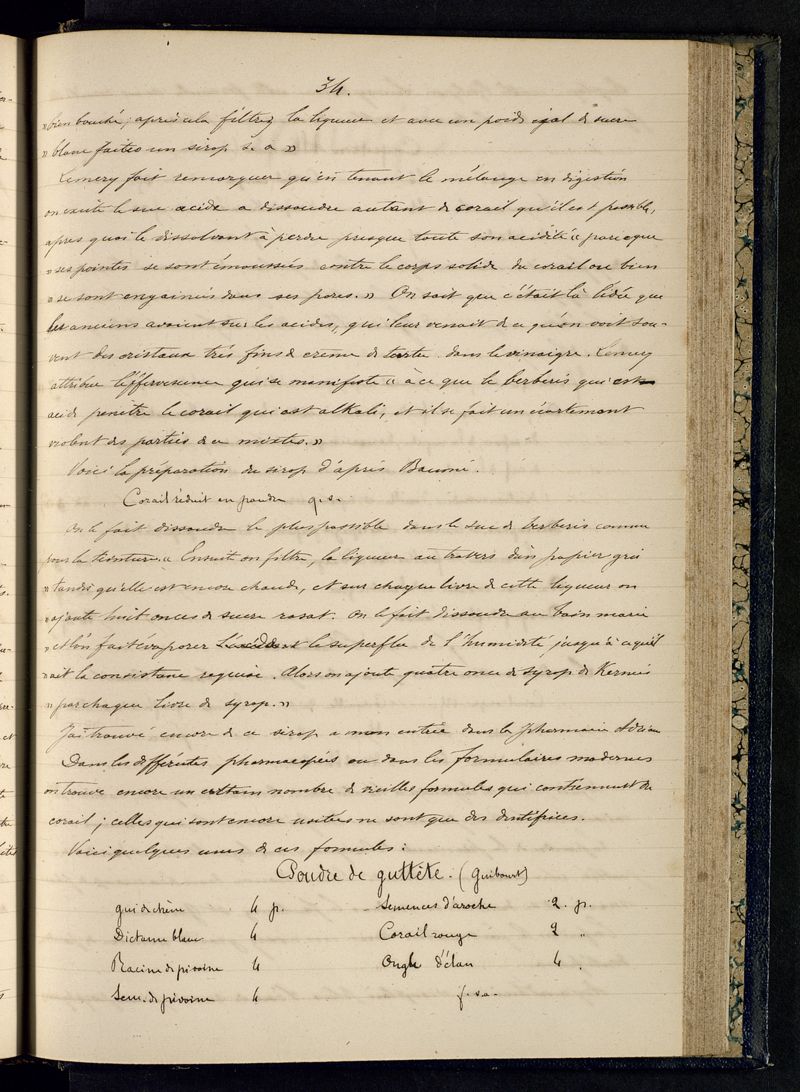 34.
» bien bouché ; après cela filtrez la liqueur et avec un poids égal de sucre
» blanc faites un sirop s. a »
Lemery fait remarquer qu'en tenant le mélange en digestion
on excite le suc acide a dissoudre autant de corail qu'il est possible,
apres quoi le dissolvant à perdre presque toute son acidité « parceque
» ses pointes se sont émoussées contre le corps solide du corail ou bien
» se sont engainées dans ses pores. » On sait que c'était là l'idée que
les anciens avaient sur les acides, qui leur venait de ce qu'on voit sou-
vent des cristaux très fins de crème de tartre dans le vinaigre. Lemery
attribue l'effervescence qui se manifeste « à ce que le berberis qui est
acide penètre le corail qui est alkali, et il se fait un écartement
violent des parties de ce mixtes. »
Voici la préparation du sirop d'après Baumé.
Corail réduit en poudre q. s.
On le fait dissoudre le plus possible dans le suc de berberis comme
pour la teinture. « Ensuite on filtre, la liqueur au travers d'un papier gris
» tandis qu'elle est encore chaude, et sur chaque livre de cette liqueur on
» ajoute huit onces de sucre rosat. On le fait dissoudre au bain marie
» et l'on fait évaporer le superflu de l'humidité jusqu'à ce qu'il
» ait la consistance requise. Alors on ajoute quatre once de syrop de Kermès
» par chaque livre de syrop. »
J'ai trouvé encore de ce sirop a mon entrée dans la pharmacie Adrian
Dans les différentes pharmacopées ou dans les formulaires modernes
on trouve encore un certain nombre de vieilles formules qui contiennent du
corail ; celles qui sont encore usitées ne sont que des dentifrices.
Voici quelques unes de ces formules :
Poudre de guttète. (Guibourt)
Gui de chêne 4 p. Semences d'aroche 2 p.
Dictame blanc 4 Corail rouge 2 "
Racine de pivoine 4 Ongle d'élan 4 "
Sem. de pivoine 4 f. s. a.